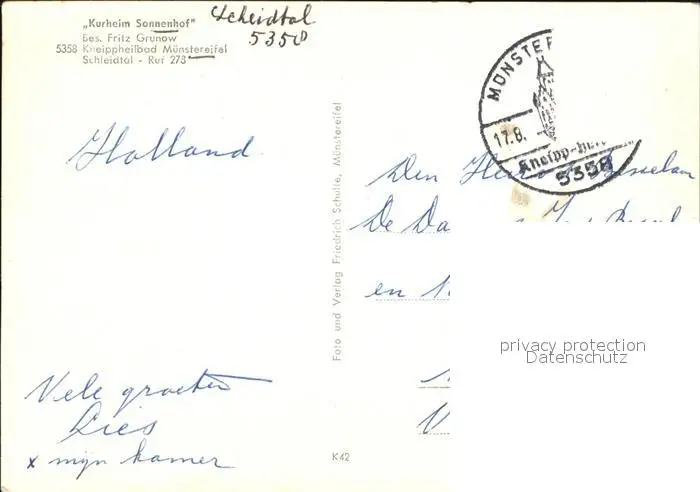 „Kurheim Sonnenhof"
Bes. Fritz Grunow
5358 Kneippheilbad Münstereifel
Schleidtal - Ruf 273
Scheidtal
5358
Holland
Vele groeten
Lies
x mijn kamer
Foto und Verlag Friedrich Schulte, Münstereifel
K42
MÜNSTER
17.8.
Kneipp-
5358
Den
De
en
privacy protection
Datenschutz